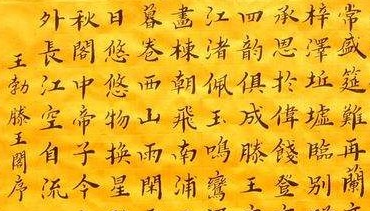 常盛筵難再蘭
梓澤坵墟臨別
承恩於偉餞登
四韵俱成滕王
江渚佩玉鳴鸞
畫棟朝飛南浦
暮卷西山雨閑
日悠悠物換星
秋閣中帝子今
外長江空自流
王勃滕王閣序